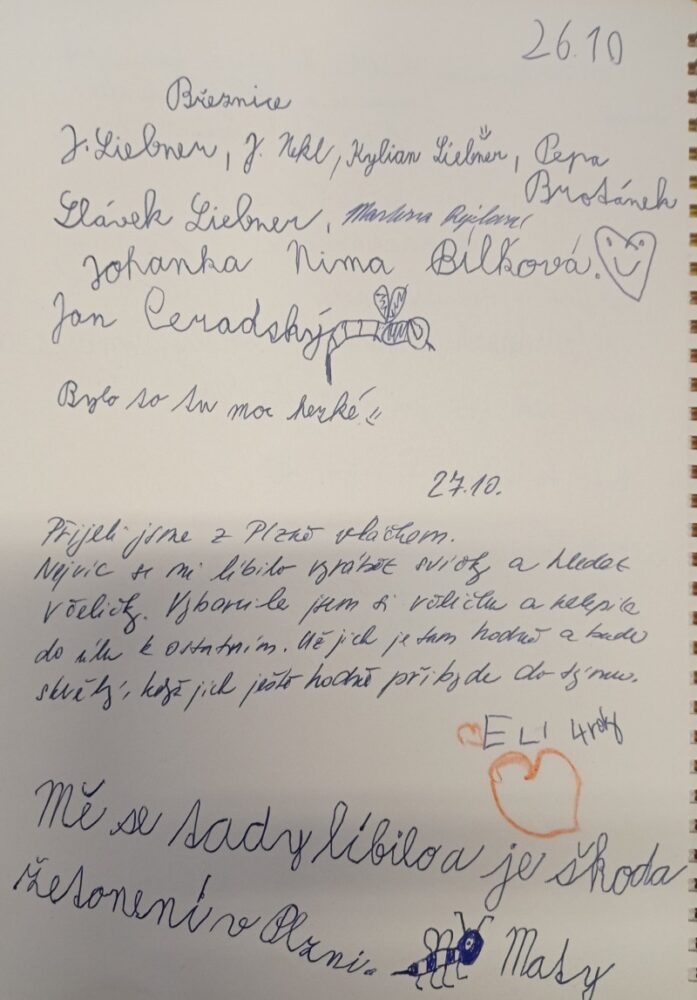 26.10
Březnice
J. Liebner, J. Nekl, Kylian Liebner, Pepa
Brotánek
Slávek Liebner, Martina
Johanka Nima Bílková.
Jan Ceradský
Bylo to tu moc hezké
27.10.
Přijeli jsme z Plzně vláčkem.
Nejvíc se mi líbilo vyrábět svíčky a hledat
včeličky. Vybarvila jsem si včeličku a nalepila
do úlu k ostatním. Už jich je tam hodně a bude
skvělý, když jich ještě hodně přibyde do týmu.
ELI 4 roky
Mě se tady líbilo a je škoda
že to není v Plzni.
Maty